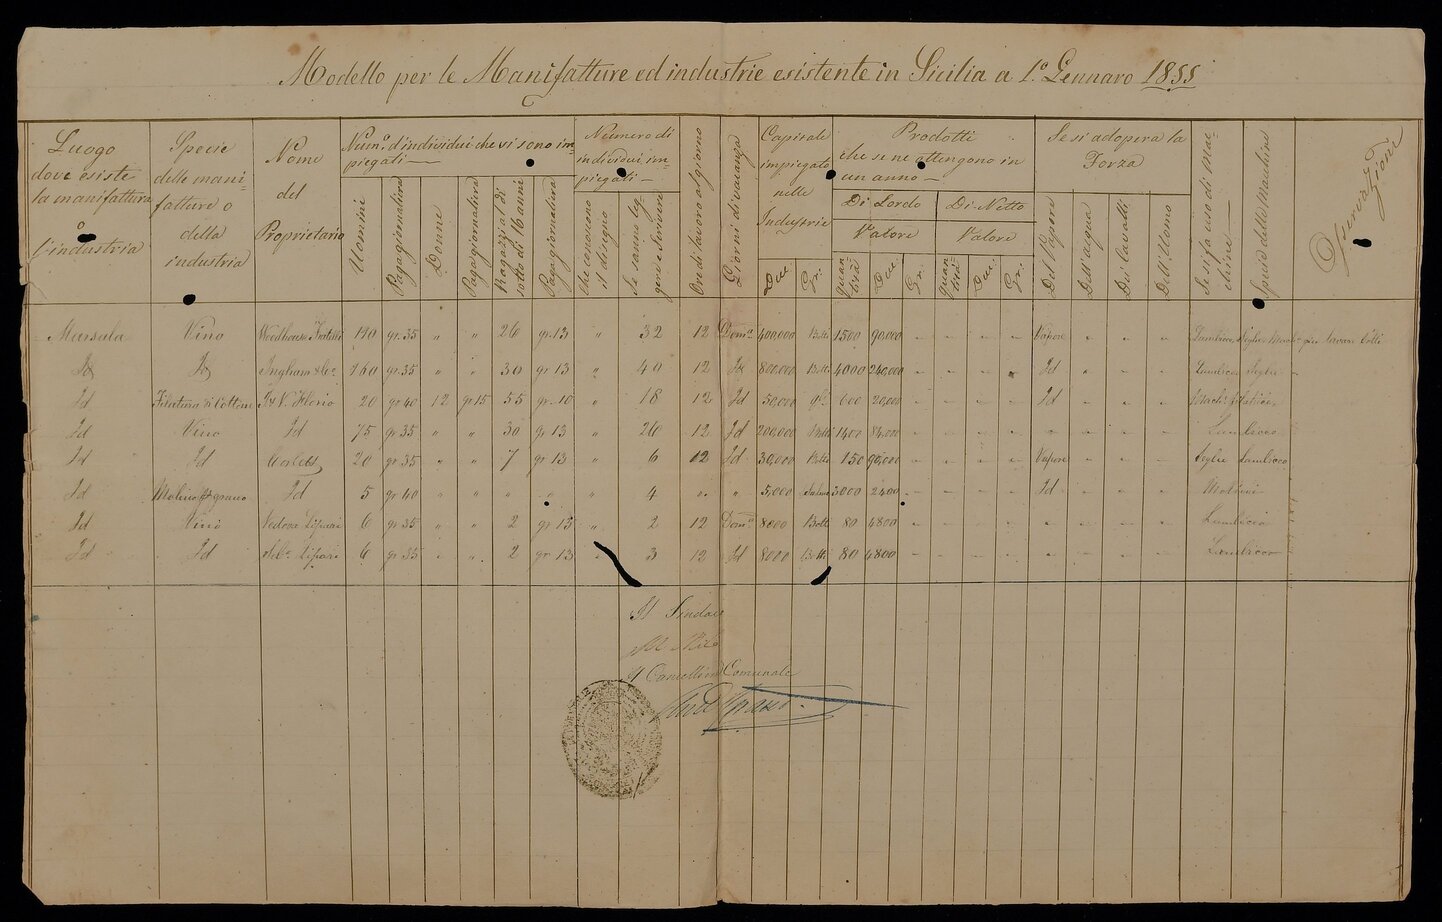 Modello per le Manifatture ed industrie esistente in Sicilia a 1.º Gennaro 1855
Luogo
dove esiste
la manifattura
o
l'industria
Specie
delle mani=
fatture o
della
industria
Nome
del
Proprietario
Num.º d'individui che vi sono im=
piegati
Uomini
Paga giornalina
Donne
Paga giornalina
Ragazzi al di
sotto di 16 anni
Paga giornalina
Numero di
individui im=
piegati
Che conoscono
il disegno
Se sanno leg=
gere e scrivere
Ore di lavoro al giorno
Giorni di vacanza
Capitale
impiegato
nelle
Industrie
Duc.
Gr.
Prodotti
che se ne ottengono in
un anno
Di Lordo
Valore
quan
tità
Duc.
Gr.
Di Netto
Valore
quan
tità
Duc.
Gr.
Se si adopera la
Forza
Del Vapore
Dell'acqua
Dei Cavalli
Dell'Uomo
Se si fa uso di Mac=
chine
Specie delle Macchine
Osservazioni
Marsala Vino Woodhouse Fratelli 190 gr. 35 " " 26 gr. 13 " 32 12 Dom.e 400,000 Botti 1500 90,000 Vapore Lambicco Seghe Mach. per lavare botti
Id Id Ingham & C.º 260 gr. 35 " " 30 gr 13 " 40 12 Id 800,000 Botti 4000 240,000 Id Lambicco Seghe
Id Filatura di Cottone V. Florio 20 gr 40 12 gr 15 55 gr. 10 " 18 12 Id 50,000 600 20,000 Id Mach.
Id Vino Id 75 gr 35 " " 30 gr 13 " 26 12 Id 200,000 Botti 1400 84,000 Lambicco
Id Id 20 gr 35 " " 7 gr 13 " 6 12 Id 30,000 Botti 150 90,000 Vapore Seghe Lambicco
Id Molino p. grano Id 5 gr 40 " " " " " 4 " " 5,000 Salme 3000 2400 Id Molini
Id Vini Vedova Lipari 6 gr. 35 " " 2 gr 15 " 2 12 Dom.e 8000 Botti 80 4800 Lambicco
Id Id Lipari 6 gr 35 " " 2 gr 13 3 12 Id 8000 Botti 80 4800 Lambicco
Il Sindaco
Il Cancelliere Comunale